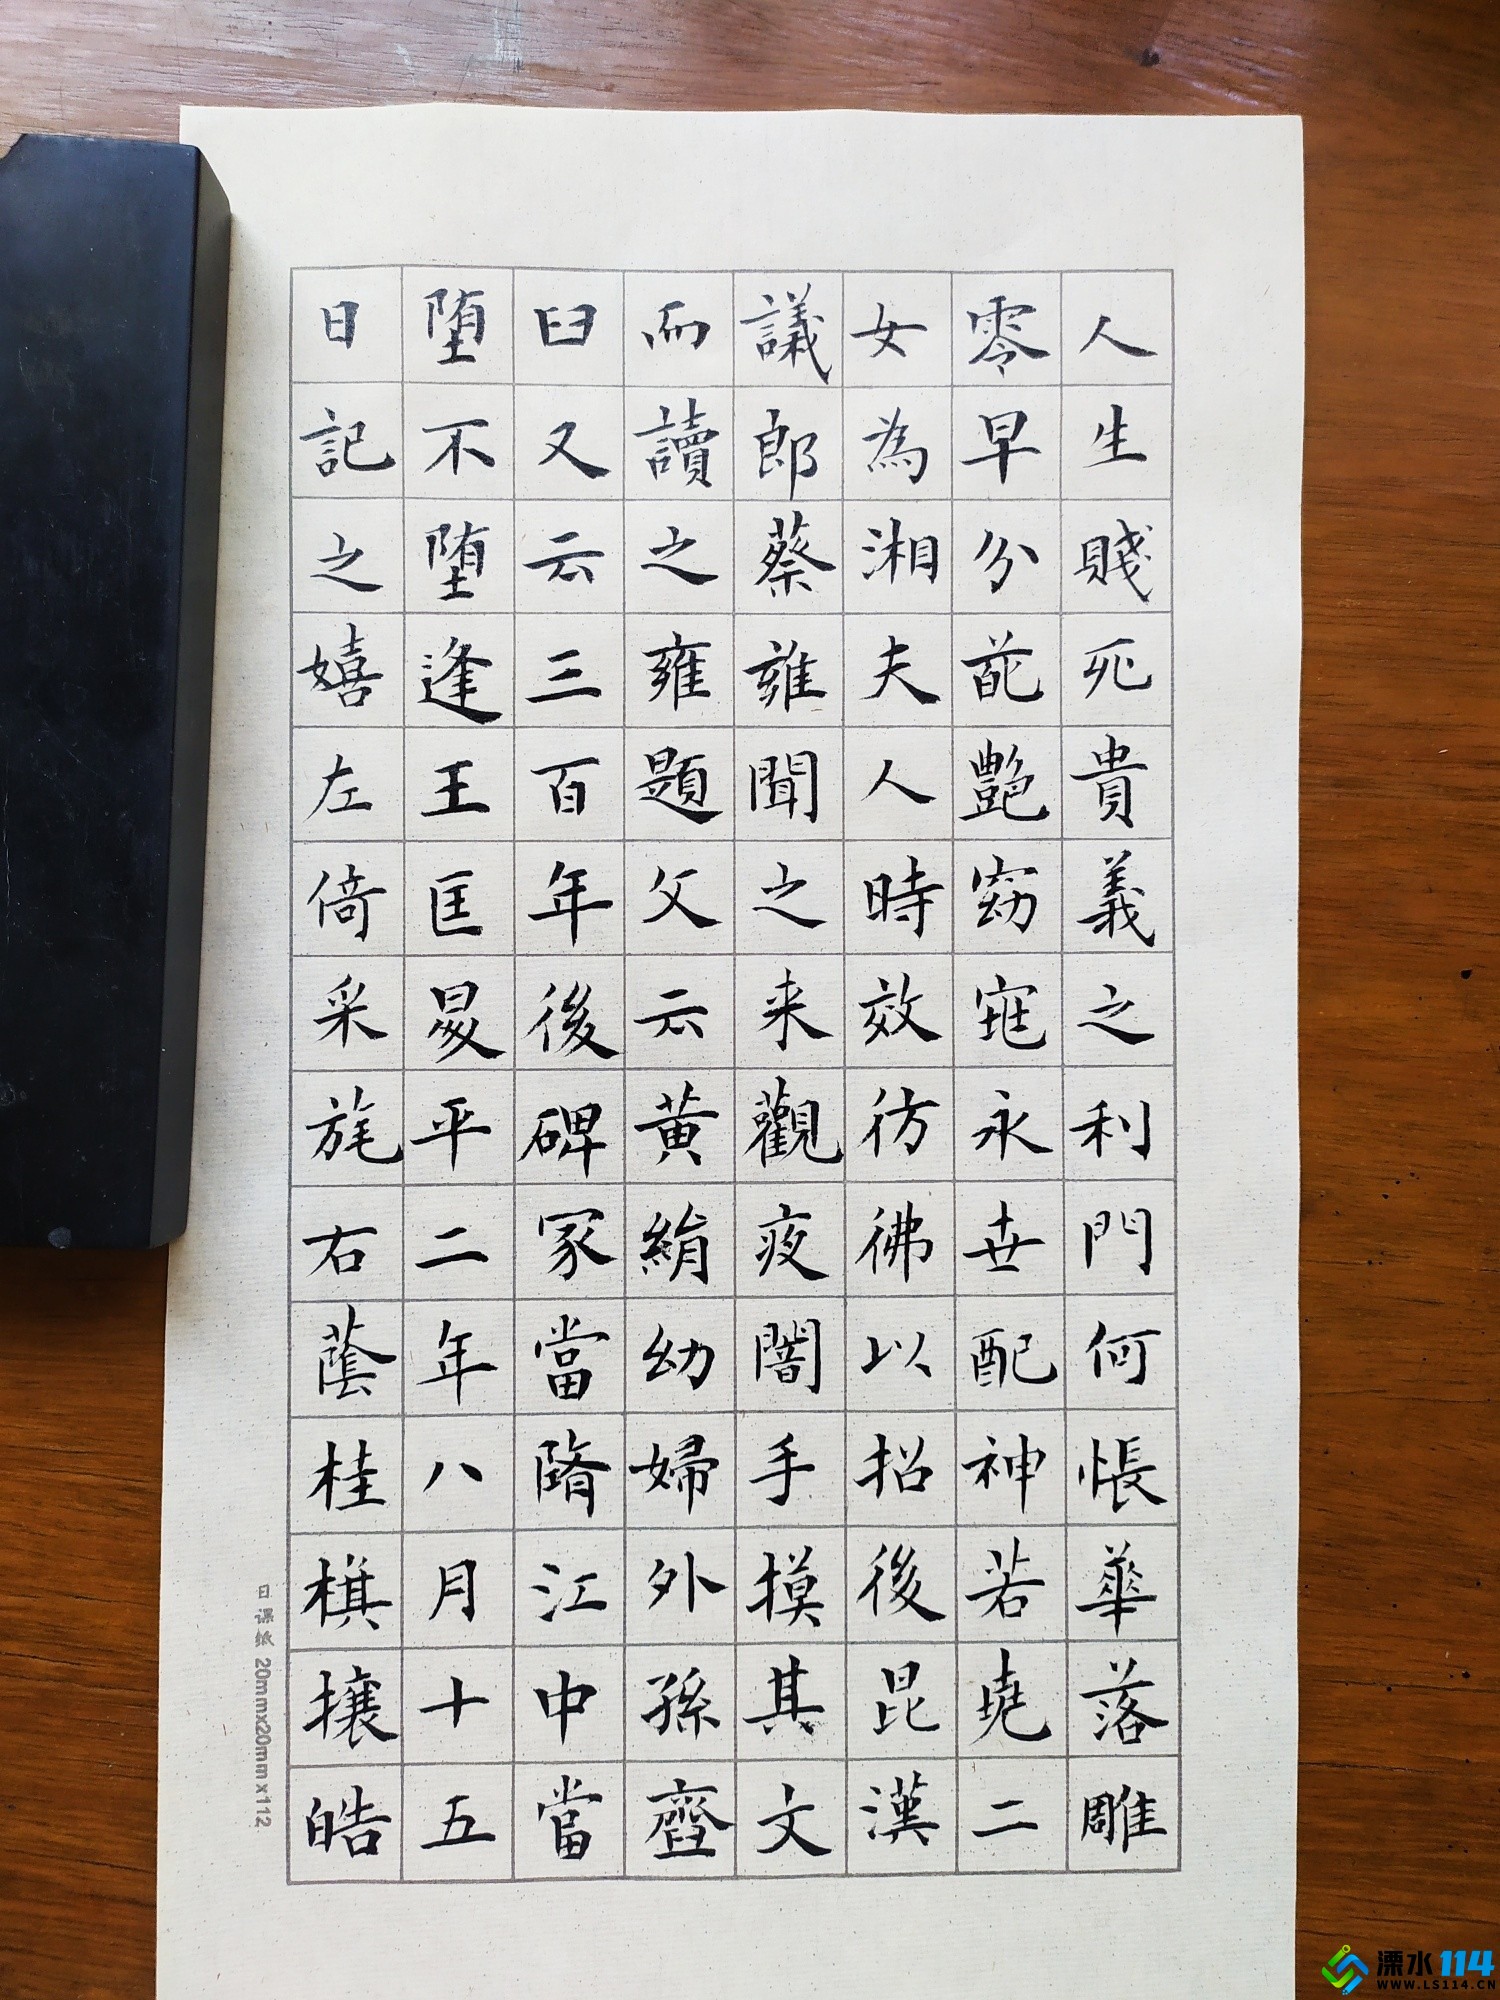 人生賤死貴義之利門何悵華落雕
零早分葩艷窈窕永世配神若堯二
女為湘夫人時效彷彿以招後昆漢
議郎蔡雍聞之来觀夜闇手摸其文
而讀之雍題父云黃絹幼婦外孫齏
臼又云三百年後碑冢當隋江中當
堕不堕逢王匡昜平二年八月十五
日記之嬉左倚采旄右蔭桂棋攘皓
日课纸 20mmx20mmx112
溧水114
WWW.LS114.CN